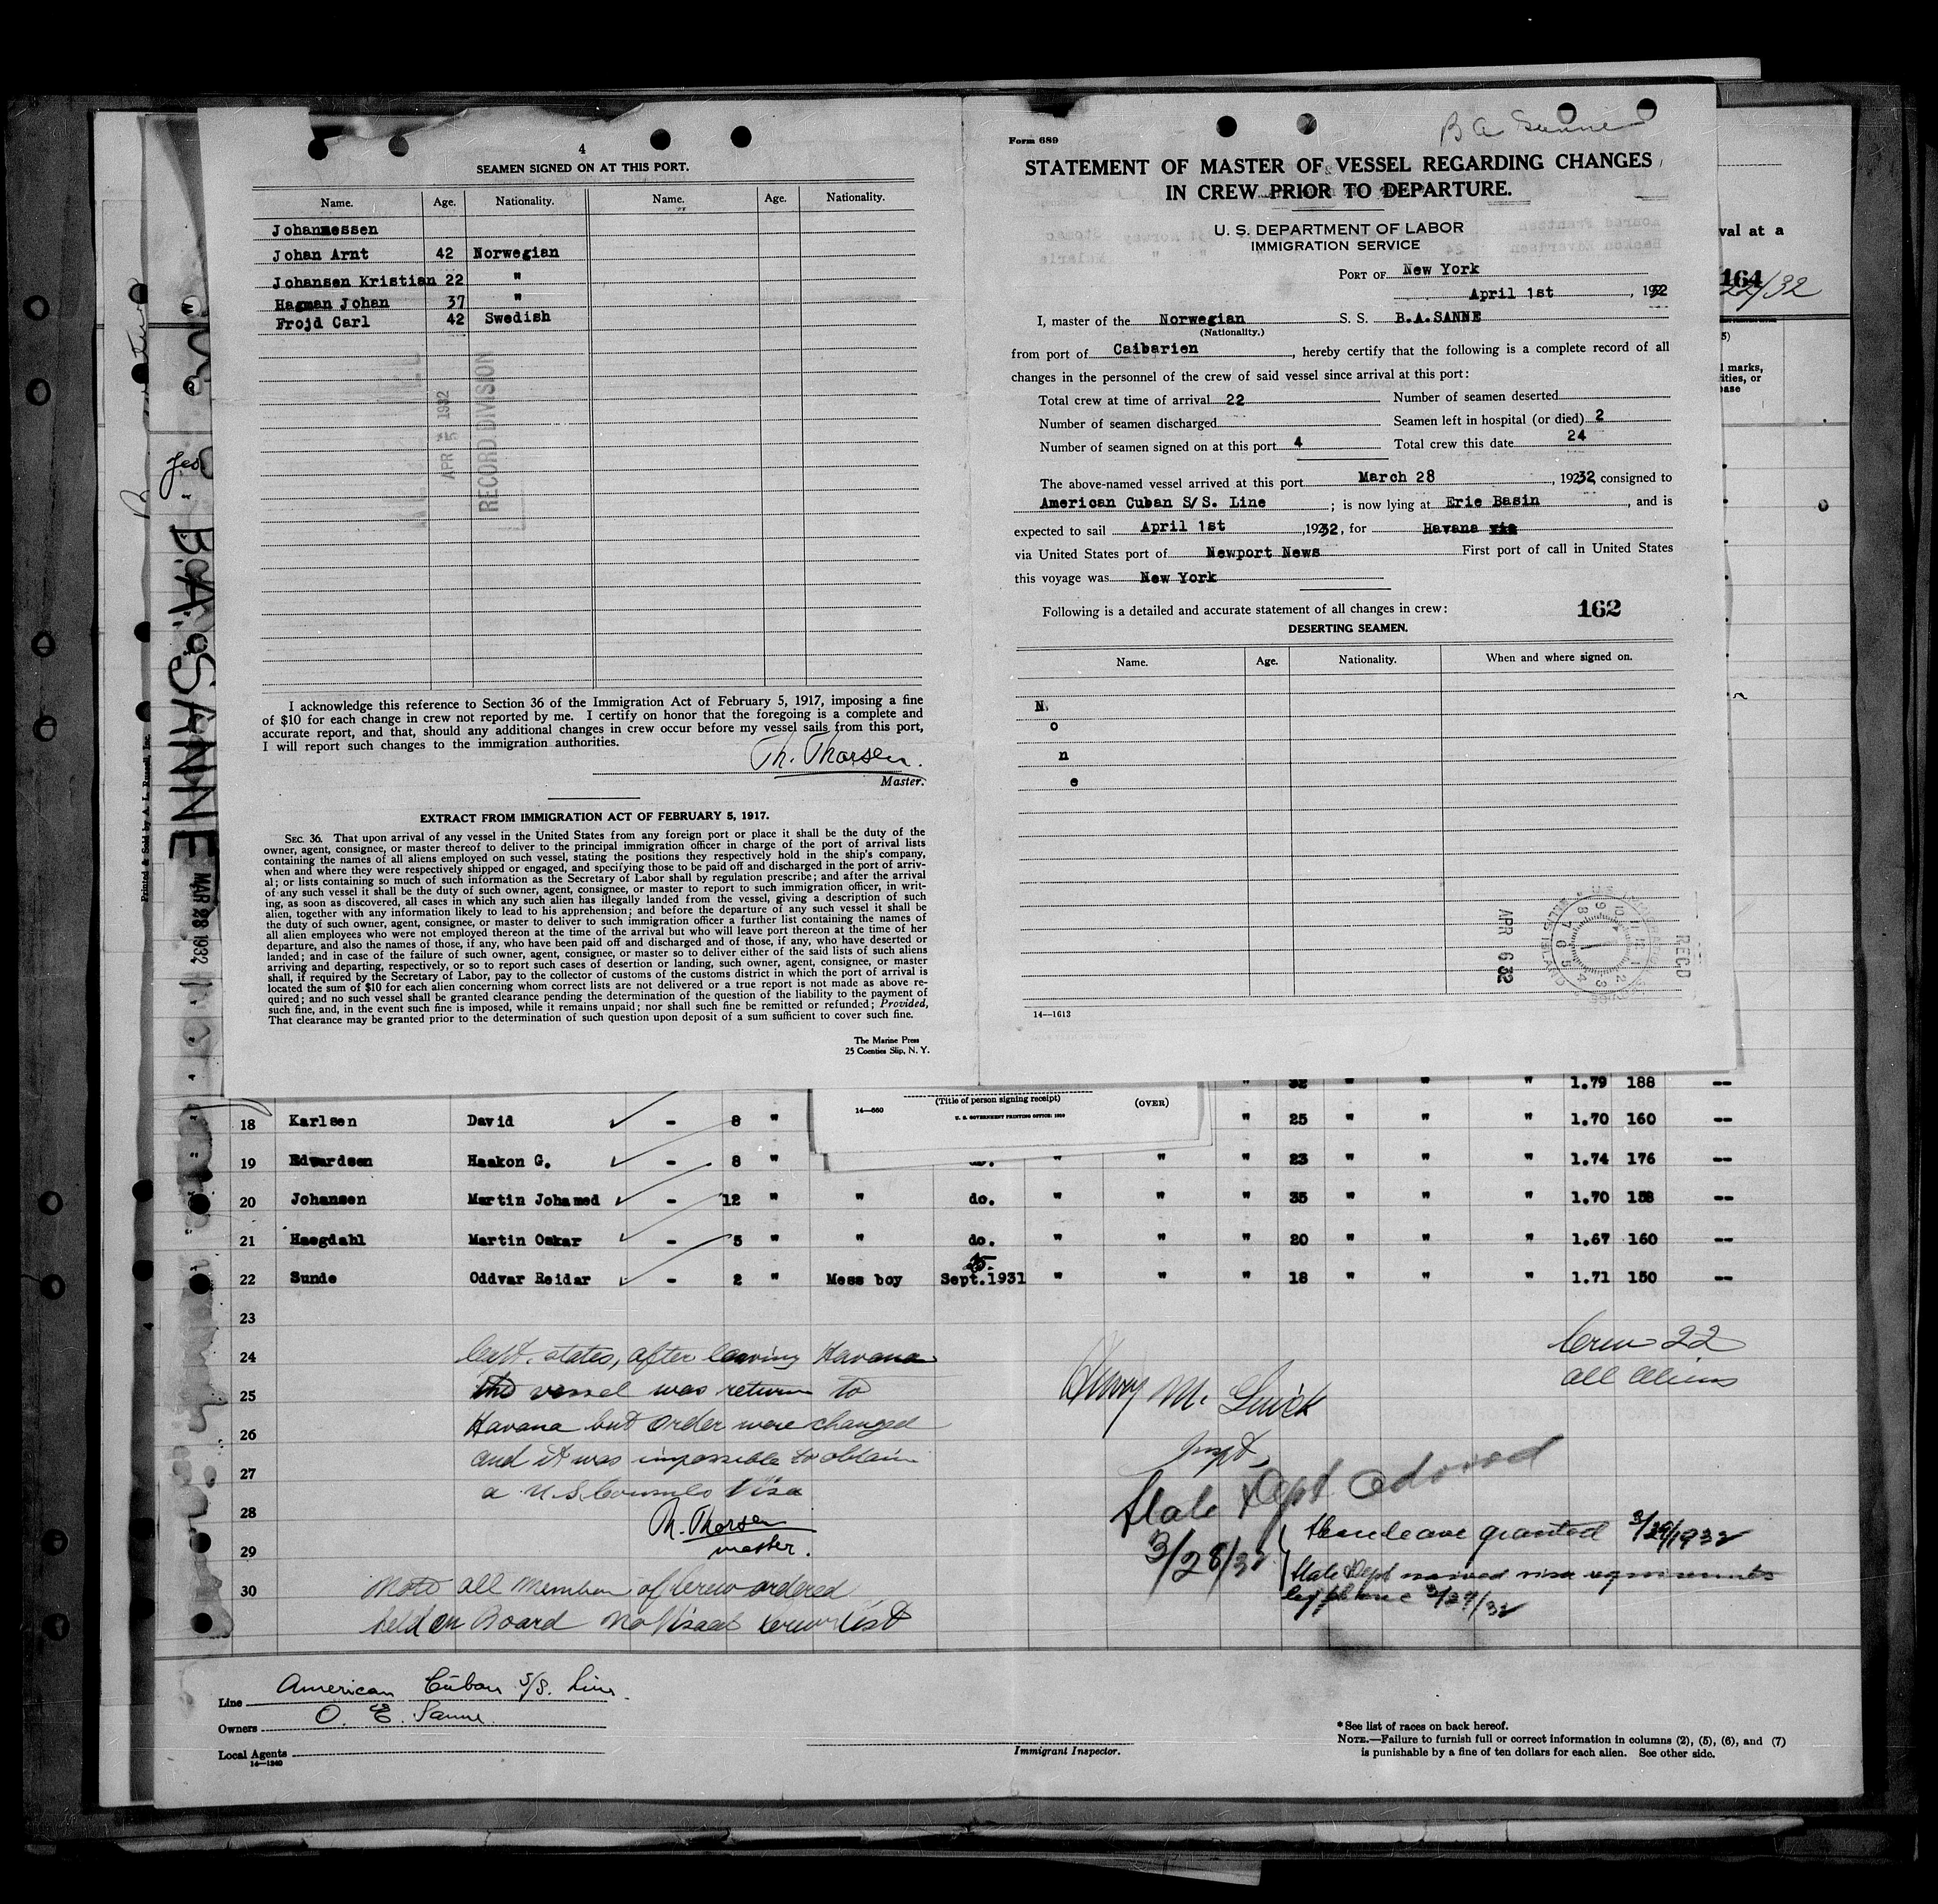 4
SEAMEN SIGNED ON AT THIS PORT.
Name. Age. Nationality. Name. Age. Nationality.
Johannessen
Johan Arnt 42 Norwegian
Johansen Kristian 22 "
Hagman Johan 37 "
Frojd Carl 42 Swedish
APR 5 1932
RECORD DIVISION
I acknowledge this reference to Section 36 of the Immigration Act of February 5, 1917, imposing a fine
of $10 for each change in crew not reported by me. I certify on honor that the foregoing is a complete and
accurate report, and that, should any additional changes in crew occur before my vessel sails from this port,
I will report such changes to the immigration authorities.
Th. Thorsen.
Master.
EXTRACT FROM IMMIGRATION ACT OF FEBRUARY 5, 1917.
SEC. 36. That upon arrival of any vessel in the United States from any foreign port or place it shall be the duty of the
owner, agent, consignee, or master thereof to deliver to the principal immigration officer in charge of the port of arrival lists
containing the names of all aliens employed on such vessel, stating the positions they respectively hold in the ship's company,
when and where they were respectively shipped or engaged, and specifying those to be paid off and discharged in the port of arriv-
al; or lists containing so much of such information as the Secretary of Labor shall by regulation prescribe; and after the arrival
of any such vessel it shall be the duty of such owner, agent, consignee, or master to report to such immigration officer, in writ-
ing, as soon as discovered, all cases in which any such alien has illegally landed from the vessel, giving a description of such
alien, together with any information likely to lead to his apprehension; and before the departure of any such vessel it shall be
the duty of such owner, agent, consignee, or master to deliver to such immigration officer a further list containing the names of
all alien employees who were not employed thereon at the time of the arrival but who will leave port thereon at the time of her
departure, and also the names of those, if any, who have been paid off and discharged and of those, if any, who have deserted or
landed; and in case of the failure of such owner, agent, consignee, or master so to deliver either of the said lists of such aliens
arriving and departing, respectively, or so to report such cases of desertion or landing, such owner, agent, consignee, or master
shall, if required by the Secretary of Labor, pay to the collector of customs of the customs district in which the port of arrival is
located the sum of $10 for each alien concerning whom correct lists are not delivered or a true report is not made as above re-
quired; and no such vessel shall be granted clearance pending the determination of the question of the liability to the payment of
such fine, and, in the event such fine is imposed, while it remains unpaid; nor shall such fine be remitted or refunded; Provided,
That clearance may be granted prior to the determination of such question upon deposit of a sum sufficient to cover such fine.
The Marine Press
25 Coenties Slip, N. Y.
B A Sanne
Form 689
STATEMENT OF MASTER OF VESSEL REGARDING CHANGES
IN CREW PRIOR TO DEPARTURE.
U. S. DEPARTMENT OF LABOR
IMMIGRATION SERVICE
PORT OF New York
April 1st, 1932
I, master of the Norwegian S. S. B.A.SANNE
(Nationality.)
from port of Caibarien, hereby certify that the following is a complete record of all
changes in the personnel of the crew of said vessel since arrival at this port:
Total crew at time of arrival 22 Number of seamen deserted
Number of seamen discharged Seamen left in hospital (or died) 2
Number of seamen signed on at this port 4 Total crew this date 24
The above-named vessel arrived at this port March 28, 19232, consigned to
American Cuban S/S. Line; is now lying at Erie Basin, and is
expected to sail April 1st, 19232, for Havana via
via United States port of Newport News First port of call in United States
this voyage was New York
Following is a detailed and accurate statement of all changes in crew: 162
DESERTING SEAMEN.
Name. Age. Nationality. When and where signed on.
N
o
n
e
APR 6 32
REC'D
14—1613
val at a
164
22/32
5)
l marks,
ities, or
ease
Printed & Sold by A. L. Russell, Inc.
B.A. SANNE
MAR 28 1932
14—660
(Title of person signing receipt)
(OVER)
U. S. GOVERNMENT PRINTING OFFICE: 1930
" 32 " " " 1.79 188 --
18 Karlsen David - 8 " " 25 " " " 1.70 160 --
19 Edvardsen Haakon G. - 8 " do. " " " 23 " " " 1.74 176 --
20 Johansen Martin Johamed - 12 " " do. " " " 35 " " " 1.70 158 --
21 Haegdahl Martin Oskar - 5 " " do. " " " 20 " " " 1.67 160 --
22 Sunde Oddvar Reidar - 2 " Mess boy Sept.1931 " " " 18 " " " 1.71 150 --
23
24
25
26
27
28
29
30
Capt. states, after leaving Havana
the vessel was return to
Havana but order were changed
and it was impossible to obtain
a U.S. Consuls Visa
Th. Thorsen
master.
Note all member of Crew ordered
held on Board no Visaed Crew list
Crew 22
all aliens
Henry M.
Inspt,
State Dept advised
3/28/32
Shoreleave granted 3/29/1932
State Dept waived visa requirements
by phone 3/29/32
Line American Cuban S/S. Line.
Owners O. E. Sanne
Local Agents
14—1240
Immigrant Inspector.
*See list of races on back hereof.
NOTE.—Failure to furnish full or correct information in columns (2), (5), (6), and (7)
is punishable by a fine of ten dollars for each alien. See other side.